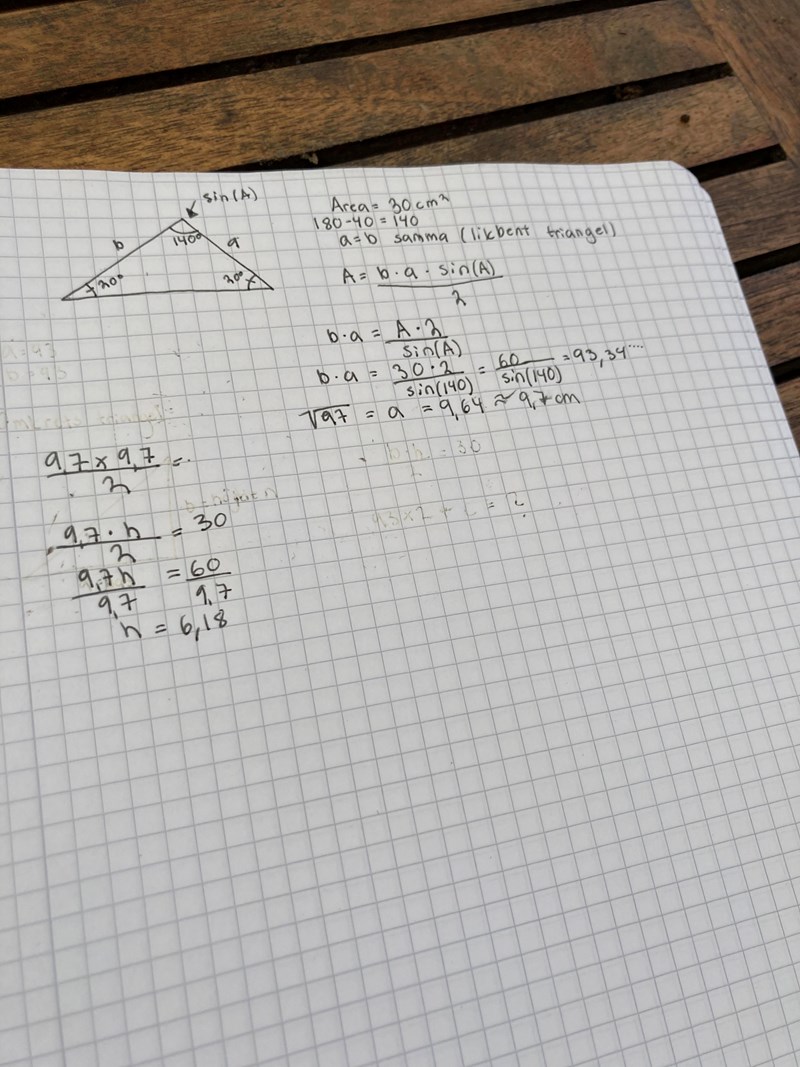 sin(A)
b 140° a
20° 20°
Area = 30 cm²
180-40 = 140
a=b samma (likbent triangel)
A = b·a·sin(A) / 2
b·a = A·2 / sin(A)
b·a = 30·2 / sin(140) = 60 / sin(140) = 93,34....
√97 = a = 9,64 ≈ 9,7 cm
9,7 × 9,7 / 2 =
9,7·h / 2 = 30
9,7h / 9,7 = 60 / 9,7
h = 6,18